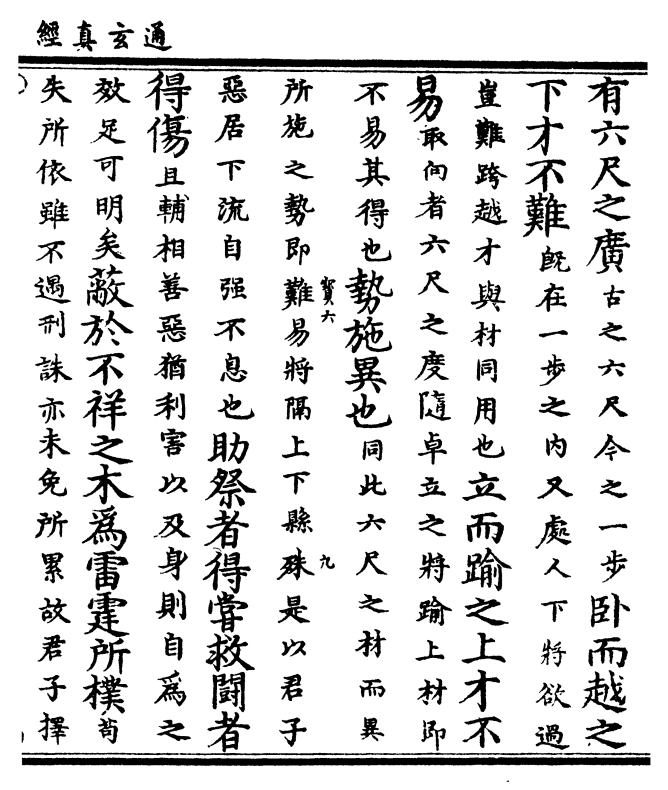 通玄真經
有六尺之廣古之六尺今之一步卧而越之
下才不難旣在一步之内又處人下將欲過
豈難跨越才與材同用也立而踰之上才不
易取向者六尺之度隨卓立之將踰上材即
不易其得也勢施異也同此六尺之材而異
所施之勢即難易將隔上下縣殊是以君子
寳六
九
惡居下流自强不息也助祭者得甞救鬬者
得傷且輔相善惡猶利害以及身則自爲之
效足可明矣蔽於不祥之木爲雷霆所樸茍
失所依雖不遇刑誅亦未免所累故君子擇